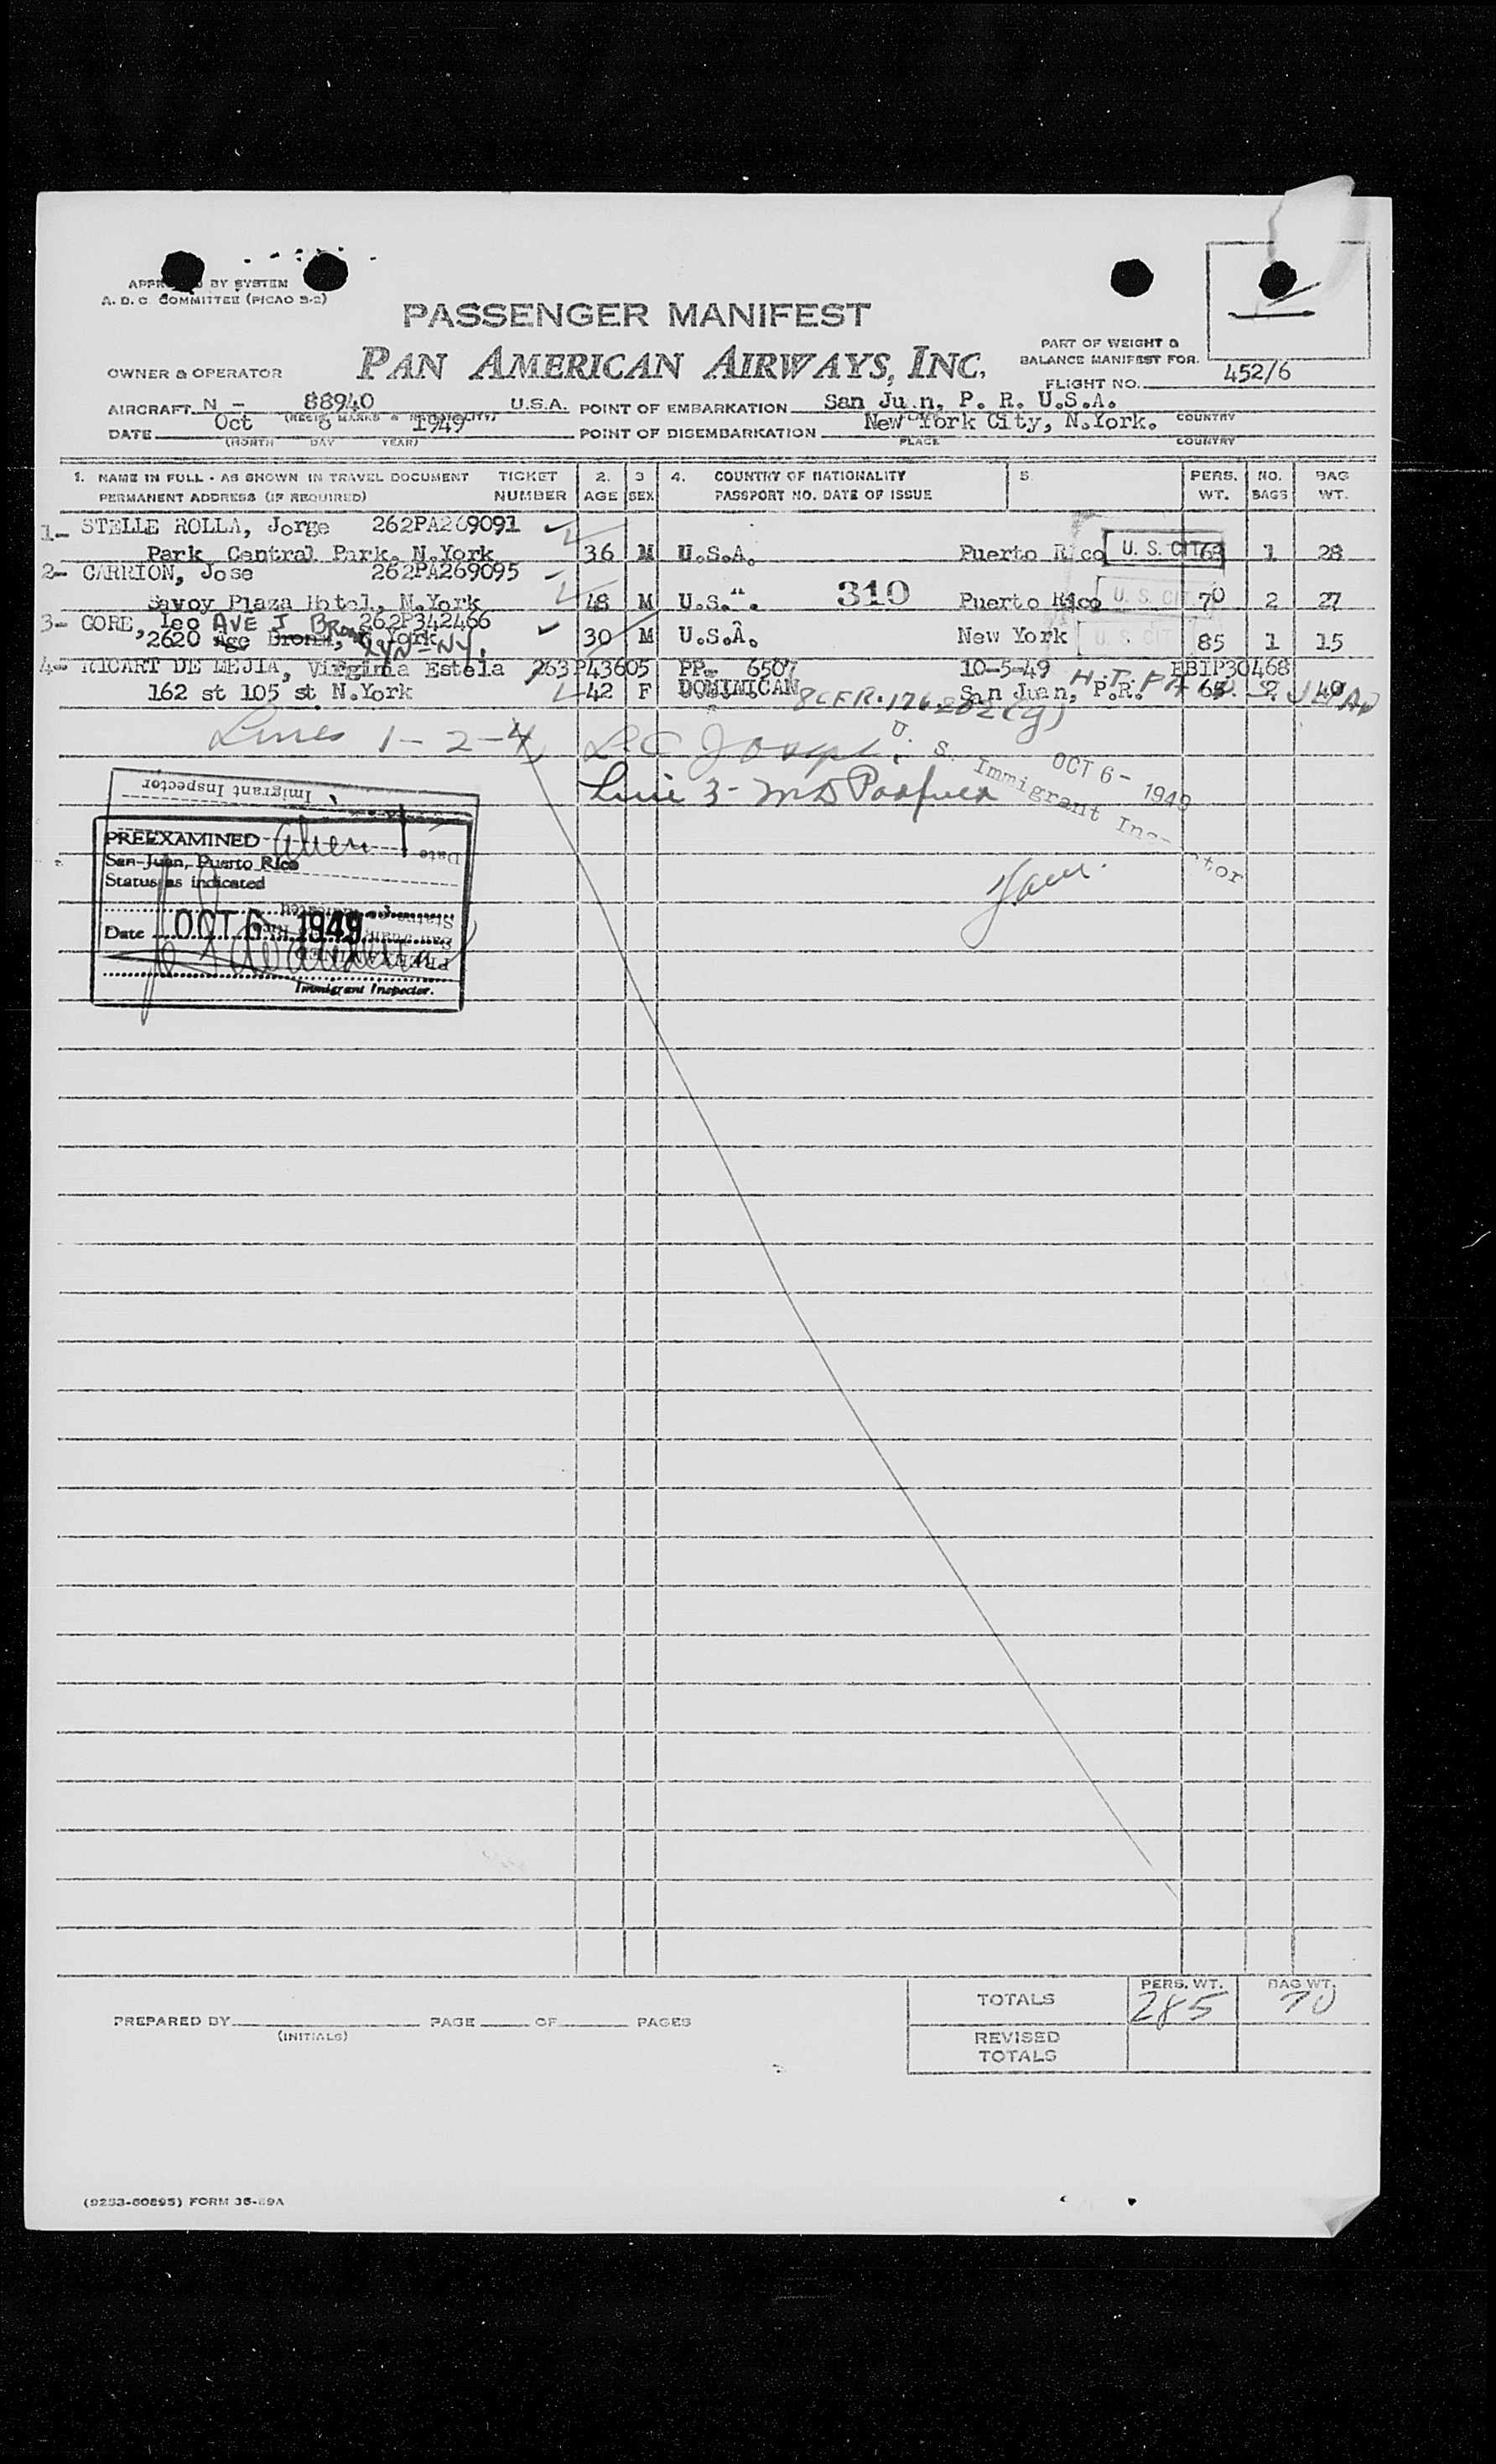 APPR BY SYSTEM
A. D. C. COMMITTEE (PICAO 9-2)
PASSENGER MANIFEST
PAN AMERICAN AIRWAYS, INC.
PART OF WEIGHT &
BALANCE MANIFEST FOR
OWNER & OPERATOR
FLIGHT NO. 452/6
AIRCRAFT N - 88940 U.S.A. POINT OF EMBARKATION San Ju n, P. R. U.S.A.
DATE Oct 6 1949 POINT OF DISEMBARKATION New York City, N.York. COUNTRY
(MONTH DAY YEAR) PLACE COUNTRY
1. NAME IN FULL - AS SHOWN IN TRAVEL DOCUMENT TICKET 2. 3 4. COUNTRY OF NATIONALITY 5. PERS. NO. BAG
PERMANENT ADDRESS (IF REQUIRED) NUMBER AGE SEX PASSPORT NO. DATE OF ISSUE WT. BAGS WT.
1- STELLE ROLLA, Jorge 262PA269091
Park Central Park, N.York 36 M U.S.A. Puerto Rico U. S. CIT 63 1 28
2- CARRION, Jose 262PA269095
Savoy Plaza Hotel, N.York 48 M U.S.". 310 Puerto Rico U. S. CIT 70 2 27
3- CORE, Leo AVE J 262P342466
2620 Age Bronx, York LYN-NY. 30 M U.S.A. New York U. S. CIT 85 1 15
4- RICART DE MEJIA, Virginia Estela 263P43605 PP- 6507 10-5-49 BBIP30468
162 st 105 st N.York 42 F DOMINICAN San Juan, P.R.
Lines 1-2-4
Line 3-
U. S. Immigrant Inspector
OCT 6 - 1949
Immigrant Inspector
PREEXAMINED
San Juan, Puerto Rico
Status as indicated
Date OCT 6 1949
Immigrant Inspector.
TOTALS PERS. WT. 285 BAG WT. 70
PREPARED BY PAGE OF PAGES
(INITIALS)
REVISED
TOTALS
(9253-60895) FORM 36-89A